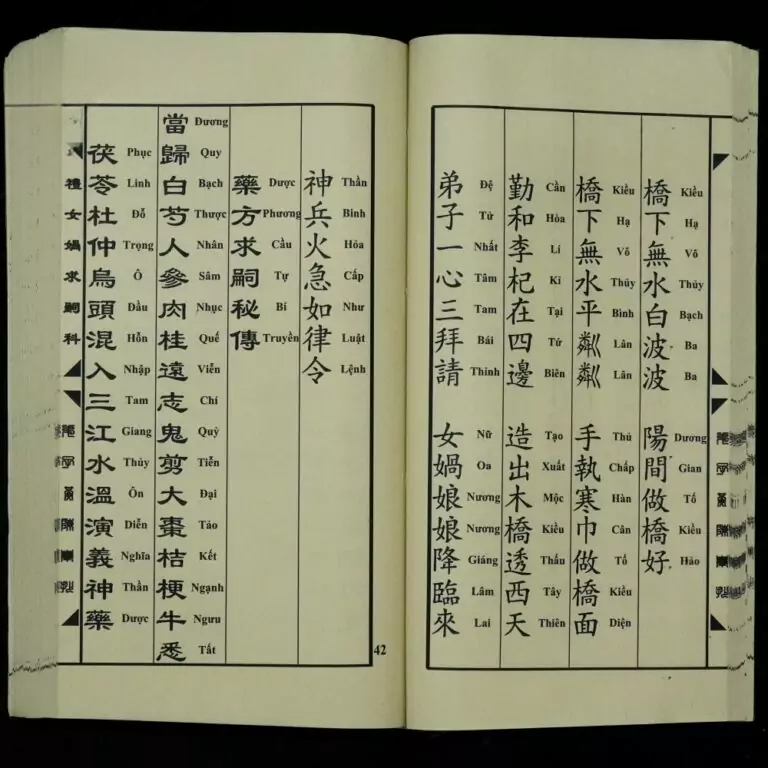 橋下無水白波波 陽間做橋好
Kiều Hạ Vô Thủy Bạch Ba Ba Dương Gian Tố Kiều Hảo
橋下無水平粼粼 手執寒巾做橋面
Kiều Hạ Vô Thủy Bình Lân Lân Thủ Chấp Hàn Cân Tố Kiều Diện
勤和李杞在四邊 造出木橋透西天
Cần Hòa Lí Ki Tại Tứ Biên Tạo Xuất Mộc Kiều Thấu Tây Thiên
弟子一心三拜請 女媧娘娘降臨來
Đệ Tử Nhất Tâm Tam Bái Thỉnh Nữ Oa Nương Nương Giáng Lâm Lai
42
神兵火急如律令
Thần Binh Hỏa Cấp Như Luật Lệnh
藥方求嗣秘傳
Dược Phương Cầu Tự Bí Truyền
當歸白芍人參肉桂遠志鬼剪大棗桔梗牛悉
Dương Quy Bạch Thược Nhân Sâm Nhục Quế Viễn Chí Quỷ Tiễn Đại Táo Kết Ngạnh Ngưu Tất
茯苓杜仲烏頭混入三江水溫演義神藥
Phục Linh Đỗ Trọng Ô Đầu Hỗn Nhập Tam Giang Thủy Ôn Diễn Nghĩa Thần Dược
禮女媧求嗣科